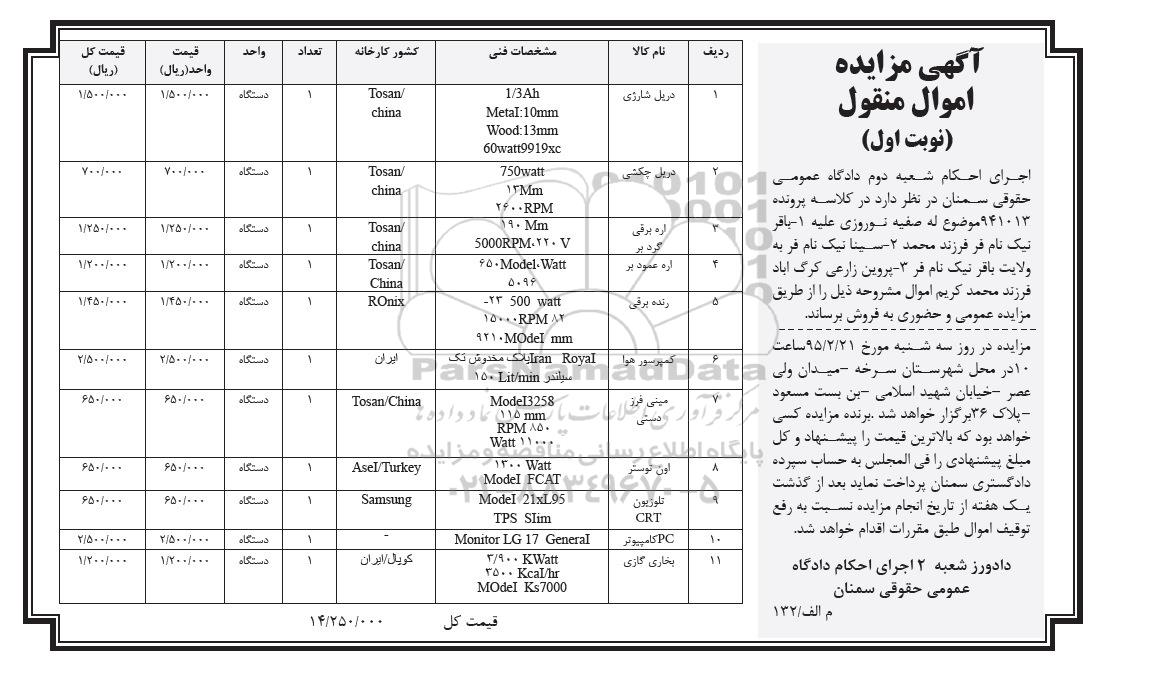 آگهی مزایده
اموال منقول
(نوبت اول)
اجرای احکام شعبه دوم دادگاه عمومی
حقوقی سمنان در نظر دارد در کلاسه پرونده
۹۴۱۰۱۳موضوع له صفیه نوروزی علیه ۱-باقر
نیک نام فر فرزند محمد ۲-سینا نیک نام فر به
ولایت باقر نیک نام فر ۳-پروین زارعی کرگ اباد
فرزند محمد کریم اموال مشروحه ذیل را از طریق
مزایده عمومی و حضوری به فروش برساند.
مزایده در روز سه شنبه مورخ ۹۵/۲/۲۱ساعت
۱۰در محل شهرستان سرخه -میدان ولی
عصر -خیابان شهید اسلامی -بن بست مسعود
-پلاک ۳۶برگزار خواهد شد .برنده مزایده کسی
خواهد بود که بالاترین قیمت را پیشنهاد و کل
مبلغ پیشنهادی را فی المجلس به حساب سپرده
دادگستری سمنان پرداخت نماید بعد از گذشت
یک هفته از تاریخ انجام مزایده نسبت به رفع
توقیف اموال طبق مقررات اقدام خواهد شد.
دادورز شعبه ۲ اجرای احکام دادگاه
عمومی حقوقی سمنان
م الف/۱۳۲
ردیف نام کالا مشخصات فنی کشور کارخانه تعداد واحد قیمت واحد(ریال) قیمت کل (ریال)
۱ دریل شارژی 1/3Ah Tosan/ ۱ دستگاه ۱/۵۰۰/۰۰۰ ۱/۵۰۰/۰۰۰
MetaI:10mm china
Wood:13mm
60watt9919xc
۲ دریل چکشی 750watt Tosan/ ۱ دستگاه ۷۰۰/۰۰۰ ۷۰۰/۰۰۰
۱۳Mm china
۲۶۰۰RPM
۳ اره برقی ۱۹۰ Mm Tosan/ ۱ دستگاه ۱/۲۵۰/۰۰۰ ۱/۲۵۰/۰۰۰
گرد بر 5000RPM،۲۲۰ V china
۴ اره عمود بر ۶۵۰ModeI،Watt Tosan/ ۱ دستگاه ۱/۲۰۰/۰۰۰ ۱/۲۰۰/۰۰۰
۵۰۹۶ China
۵ رنده برقی -۲۳ 500 watt ROnix ۱ دستگاه ۱/۴۵۰/۰۰۰ ۱/۴۵۰/۰۰۰
۱۵۰۰۰RPM ۸۲
۹۲۱۰MOdeI mm
۶ کمپرسور هوا Iran RoyaIپلاک مخدوش تک ایران ۱ دستگاه ۲/۵۰۰/۰۰۰ ۲/۵۰۰/۰۰۰
سیلندر ۱۵۰ Lit/min
۷ مینی فرز ModeI3258 Tosan/China ۱ دستگاه ۶۵۰/۰۰۰ ۶۵۰/۰۰۰
دستی ۱۱۵ mm
RPM ۸۵۰
Watt ۱۱۰۰۰
۸ اون توستر ۱۳۰۰ Watt AseI/Turkey ۱ دستگاه ۶۵۰/۰۰۰ ۶۵۰/۰۰۰
ModeI FCAT
۹ تلوزیون ModeI 21xL95 Samsung ۱ دستگاه ۶۵۰/۰۰۰ ۶۵۰/۰۰۰
CRT TPS SIim
۱۰ PCکامپیوتر Monitor LG 17 GeneraI - ۱ دستگاه ۲/۵۰۰/۰۰۰ ۲/۵۰۰/۰۰۰
۱۱ بخاری گازی ۳/۹۰۰ KWatt کوپال/ایران ۱ دستگاه ۱/۲۰۰/۰۰۰ ۱/۲۰۰/۰۰۰
۳۵۰۰ KcaI/hr
MOdeI Ks7000
قیمت کل ۱۴/۲۵۰/۰۰۰
ParsNamadData
پایگاه اطلاع رسانی مناقصه و مزایده